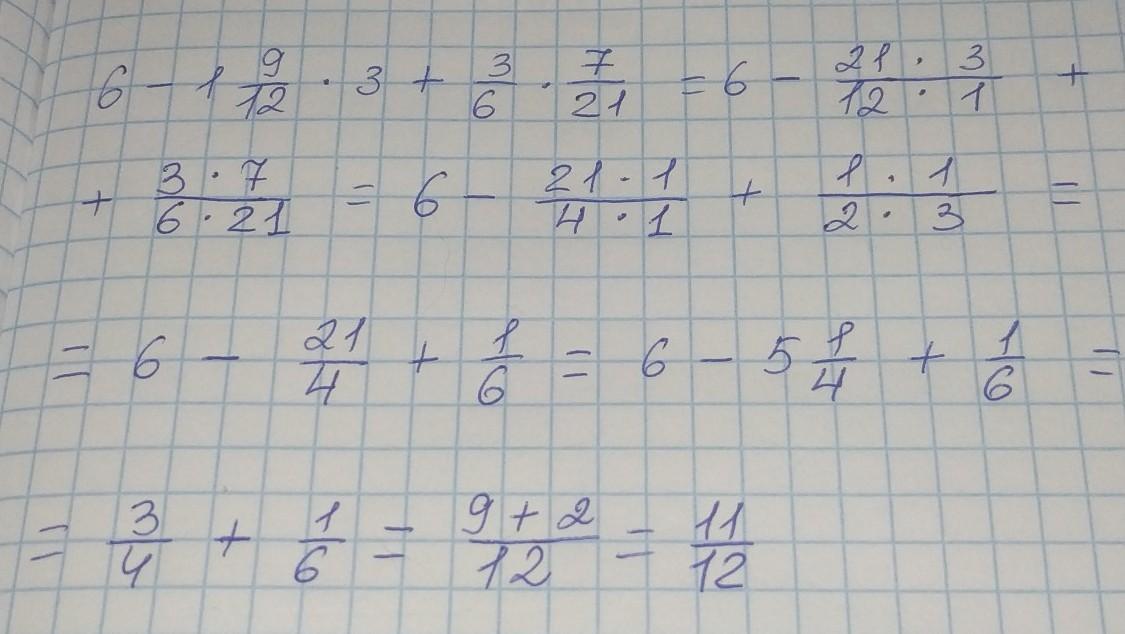 6 - 1 9/12 · 3 + 3/6 · 7/21 = 6 - (21 · 3)/(12 · 1) +
+ (3 · 7)/(6 · 21) = 6 - (21 · 1)/(4 · 1) + (1 · 1)/(2 · 3) =
= 6 - 21/4 + 1/6 = 6 - 5 1/4 + 1/6 =
= 3/4 + 1/6 = (9 + 2)/12 = 11/12